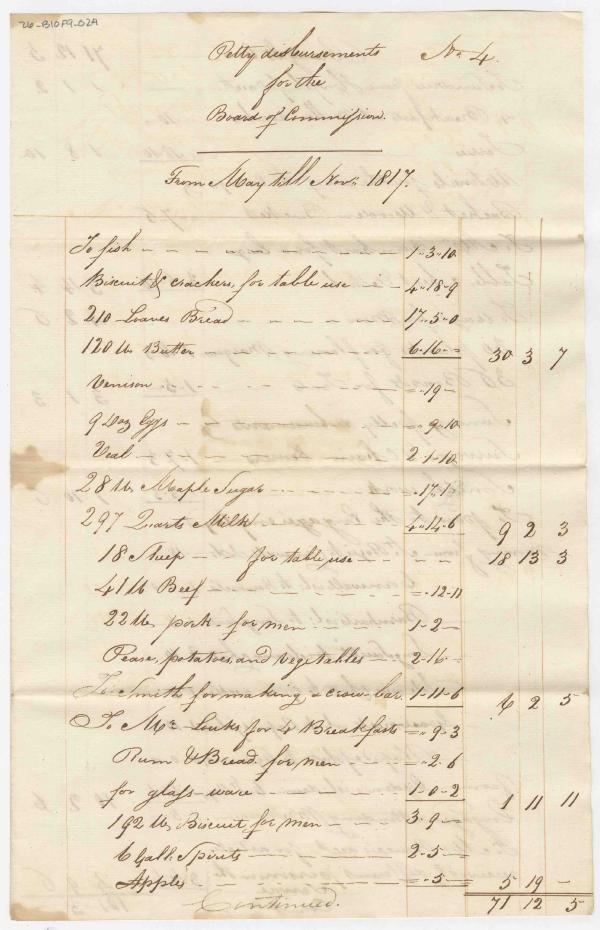 26-B10F9-02A
Petty disbursements No. 4.
for the
Board of Commission.
From May till Novr. 1817.
To fish - - - - - - - 1 " 3 " 10
Biscuit & crackers, for table use - - 4 " 18 - 9
210 Loaves Bread - - - - 17 " 5 " 0
120 lb Butter - - - - 6 - 16 - = 30 3 7
Venison - - - - = " 19 -
9 Doz Eggs - - - - = " 9 - 10
Veal - - - - 2 - 1 - 10
28 lb Maple Sugar - - - - 17 - 1
297 Quarts Milk 4 - 14 - 6 9 2 3
18 Sheep - for table use - - - - 18 13 3
41 lb Beef = - 12 - 11
22 lb pork - for men - - - 1 - 2 -
Pease, potatoes, and vegetables - - 2 - 16 -
To Smith for making a crow-bar. 1 - 11 - 6 6 2 5
To Mr. Louks for 4 Breakfasts = " 9 - 3
Rum & Bread for men - - - - 2 - 6
for glass-ware - - - - 1 - 0 - 2 1 11 11
192 lb Biscuit, for men - - 3 - 9 -
6 Galls. Spirits - - - - 2 - 5 -
Apples - - - - = - 5 - 5 19 -
Continued. 71 12 5